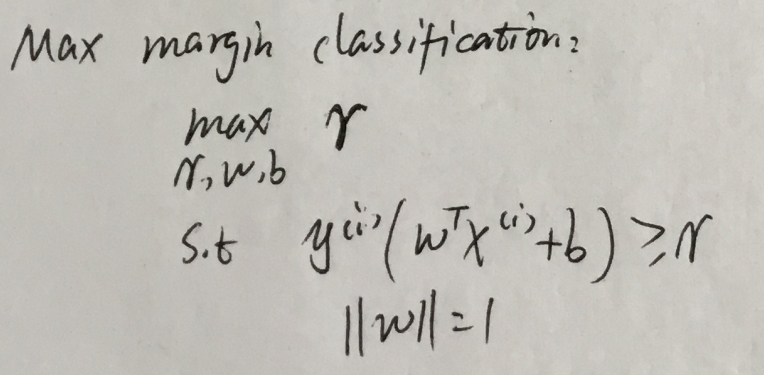 Max margin classification:
max γ
γ, w, b
s.t y⁽ⁱ⁾(wᵀx⁽ⁱ⁾+b) ≥ γ
||w|| = 1